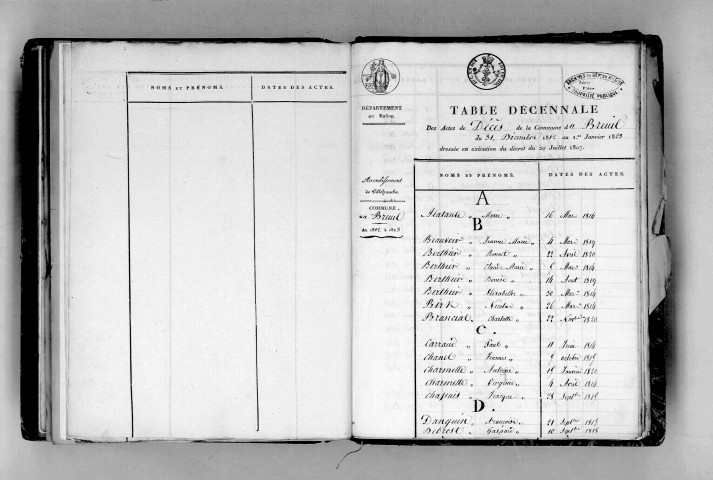 NOMS ET PRÉNOMS. DATES DES ACTES.
DÉPARTEMENT
du Rhône.
Arrondissement
de Villefranche.
COMMUNE
du Breuil
An 1802 à 1823
TABLE DÉCENNALE
Des Actes de Décès de la Commune du Breuil
du 31, Décembre 1812 au 1.er Janvier 1823
dressée en exécution du décret du 20 Juillet 1807.
NOMS ET PRÉNOMS. DATES DES ACTES.
A
Marie " 16 Mars 1814
B
Beauvoir " Jeanne Marie " 4 Mai 1819
Berthier " Benoit " 22 Avril 1820
Berthier " Claude Marie " 5 Mars 1814
Berthier " 14 Aout 1819
Berthier " Elisabeth " 30 1814
Birk " Nicolas " 26 Mars 1814
Brancial " Charlotte " 22 Nov.bre 1820
C.
Carraud " Paul " 11 1814
Chanel " Jeanne " 5 octobre 1815
Charmette " Antoine " 15 Janvier 1820
Charmette " Virginie " 4 Avril 1814
Chassais " Jacques " 28 Sept.bre 1815
D.
Danguin " Françoise " 21 Sept.bre 1815
Debrost " Gaspard " 10 Sept.bre 1818